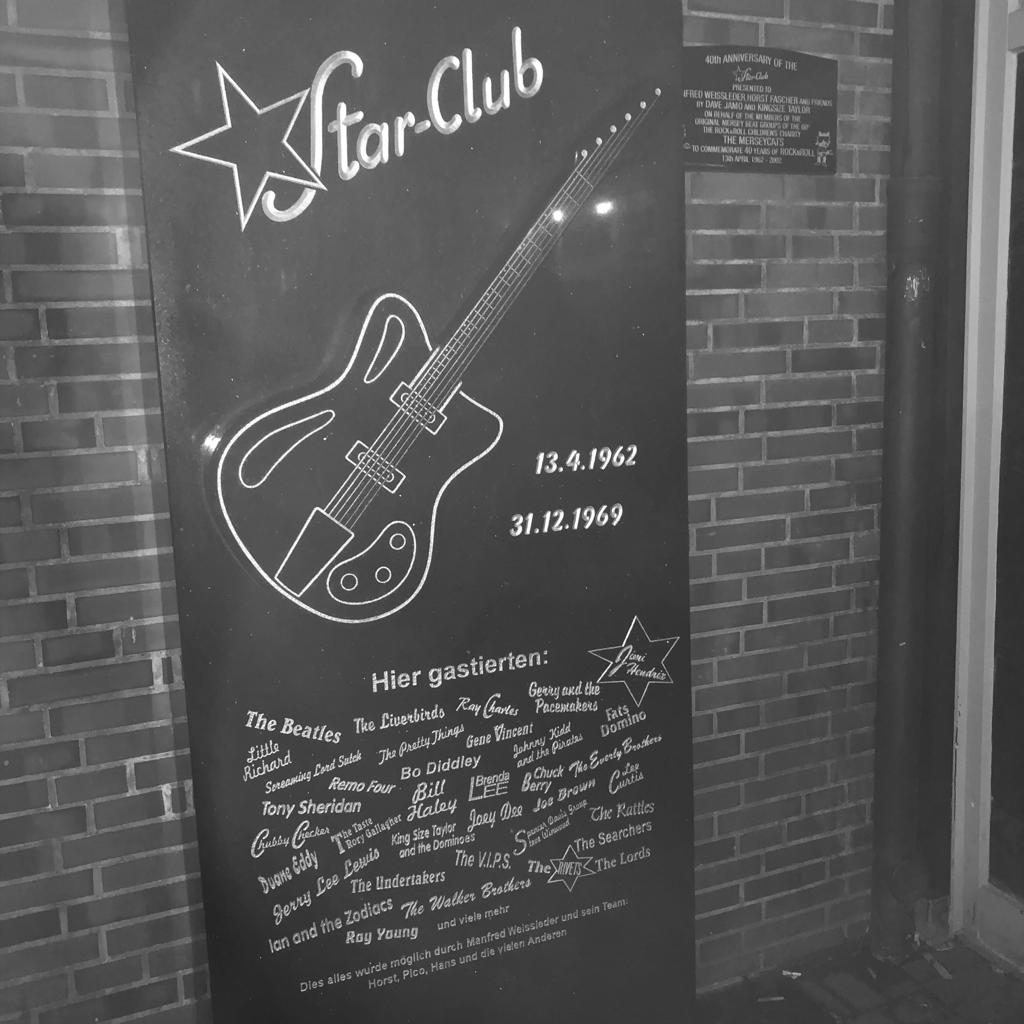 Star-Club
13.4.1962
31.12.1969
Hier gastierten:
Jimi
Hendrix
The Beatles
The Liverbirds
Ray Charles
Gerry and the
Pacemakers
Little
Richard
Screaming Lord Sutch
The Pretty Things
Gene Vincent
Johnny Kidd
and the Pirates
Fats
Domino
Remo Four
Bo Diddley
Tony Sheridan
Bill
Haley
Brenda
LEE
Chuck
Berry
The Everly Brothers
Chubby Checker
The Taste
Rory Gallagher
King Size Taylor
and the Dominoes
Joey Dee
Joe Brown
Lee
Curtis
Duane Eddy
Jerry Lee Lewis
The V.I.P.S.
Spencer Davis Group
Steve Winwood
The Rattles
The Searchers
The Undertakers
The RIVETS
The Lords
Ian and the Zodiacs
The Walker Brothers
Roy Young
und viele mehr
Dies alles wurde möglich durch Manfred Weissleder und sein Team:
Horst, Pico, Hans und die vielen Anderen
40th ANNIVERSARY OF THE
Star-Club
PRESENTED TO
FRED WEISSLEDER HORST FASCHER AND FRIENDS
BY DAVE JAMO AND KINGSIZE TAYLOR
ON BEHALF OF THE MEMBERS OF THE
ORIGINAL MERSEY BEAT GROUPS OF THE 60'
THE ROCK&ROLL CHILDREN'S CHARITY
THE MERSEYCATS
TO COMMEMORATE 40 YEARS OF ROCK&ROLL
13th APRIL 1962 - 2002